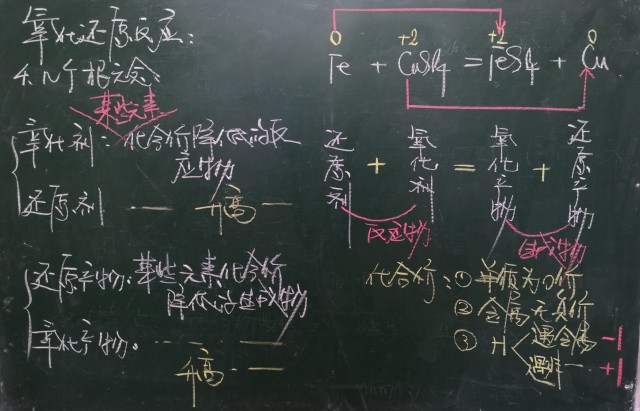 氧化还原反应:
4个概念:
某些元素
氧化剂: 化合价降低的反
应物
还原剂 —— 升高 ——
还原产物: 某些元素化合价
降低的生成物
氧化产物: —— ——
升高 ——
0 +2 +2 0
Fe + CuSO4 = FeSO4 + Cu
还原剂 + 氧化剂 = 氧化产物 + 还原产物
反应物 生成物
化合价: ① 单质为0价
② 金属无负价
③ H < 遇金属 -1
遇非— +1